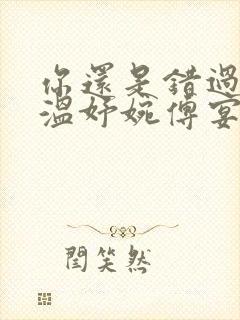 你還是錯過
溫妤婉傅宴
閆笑然